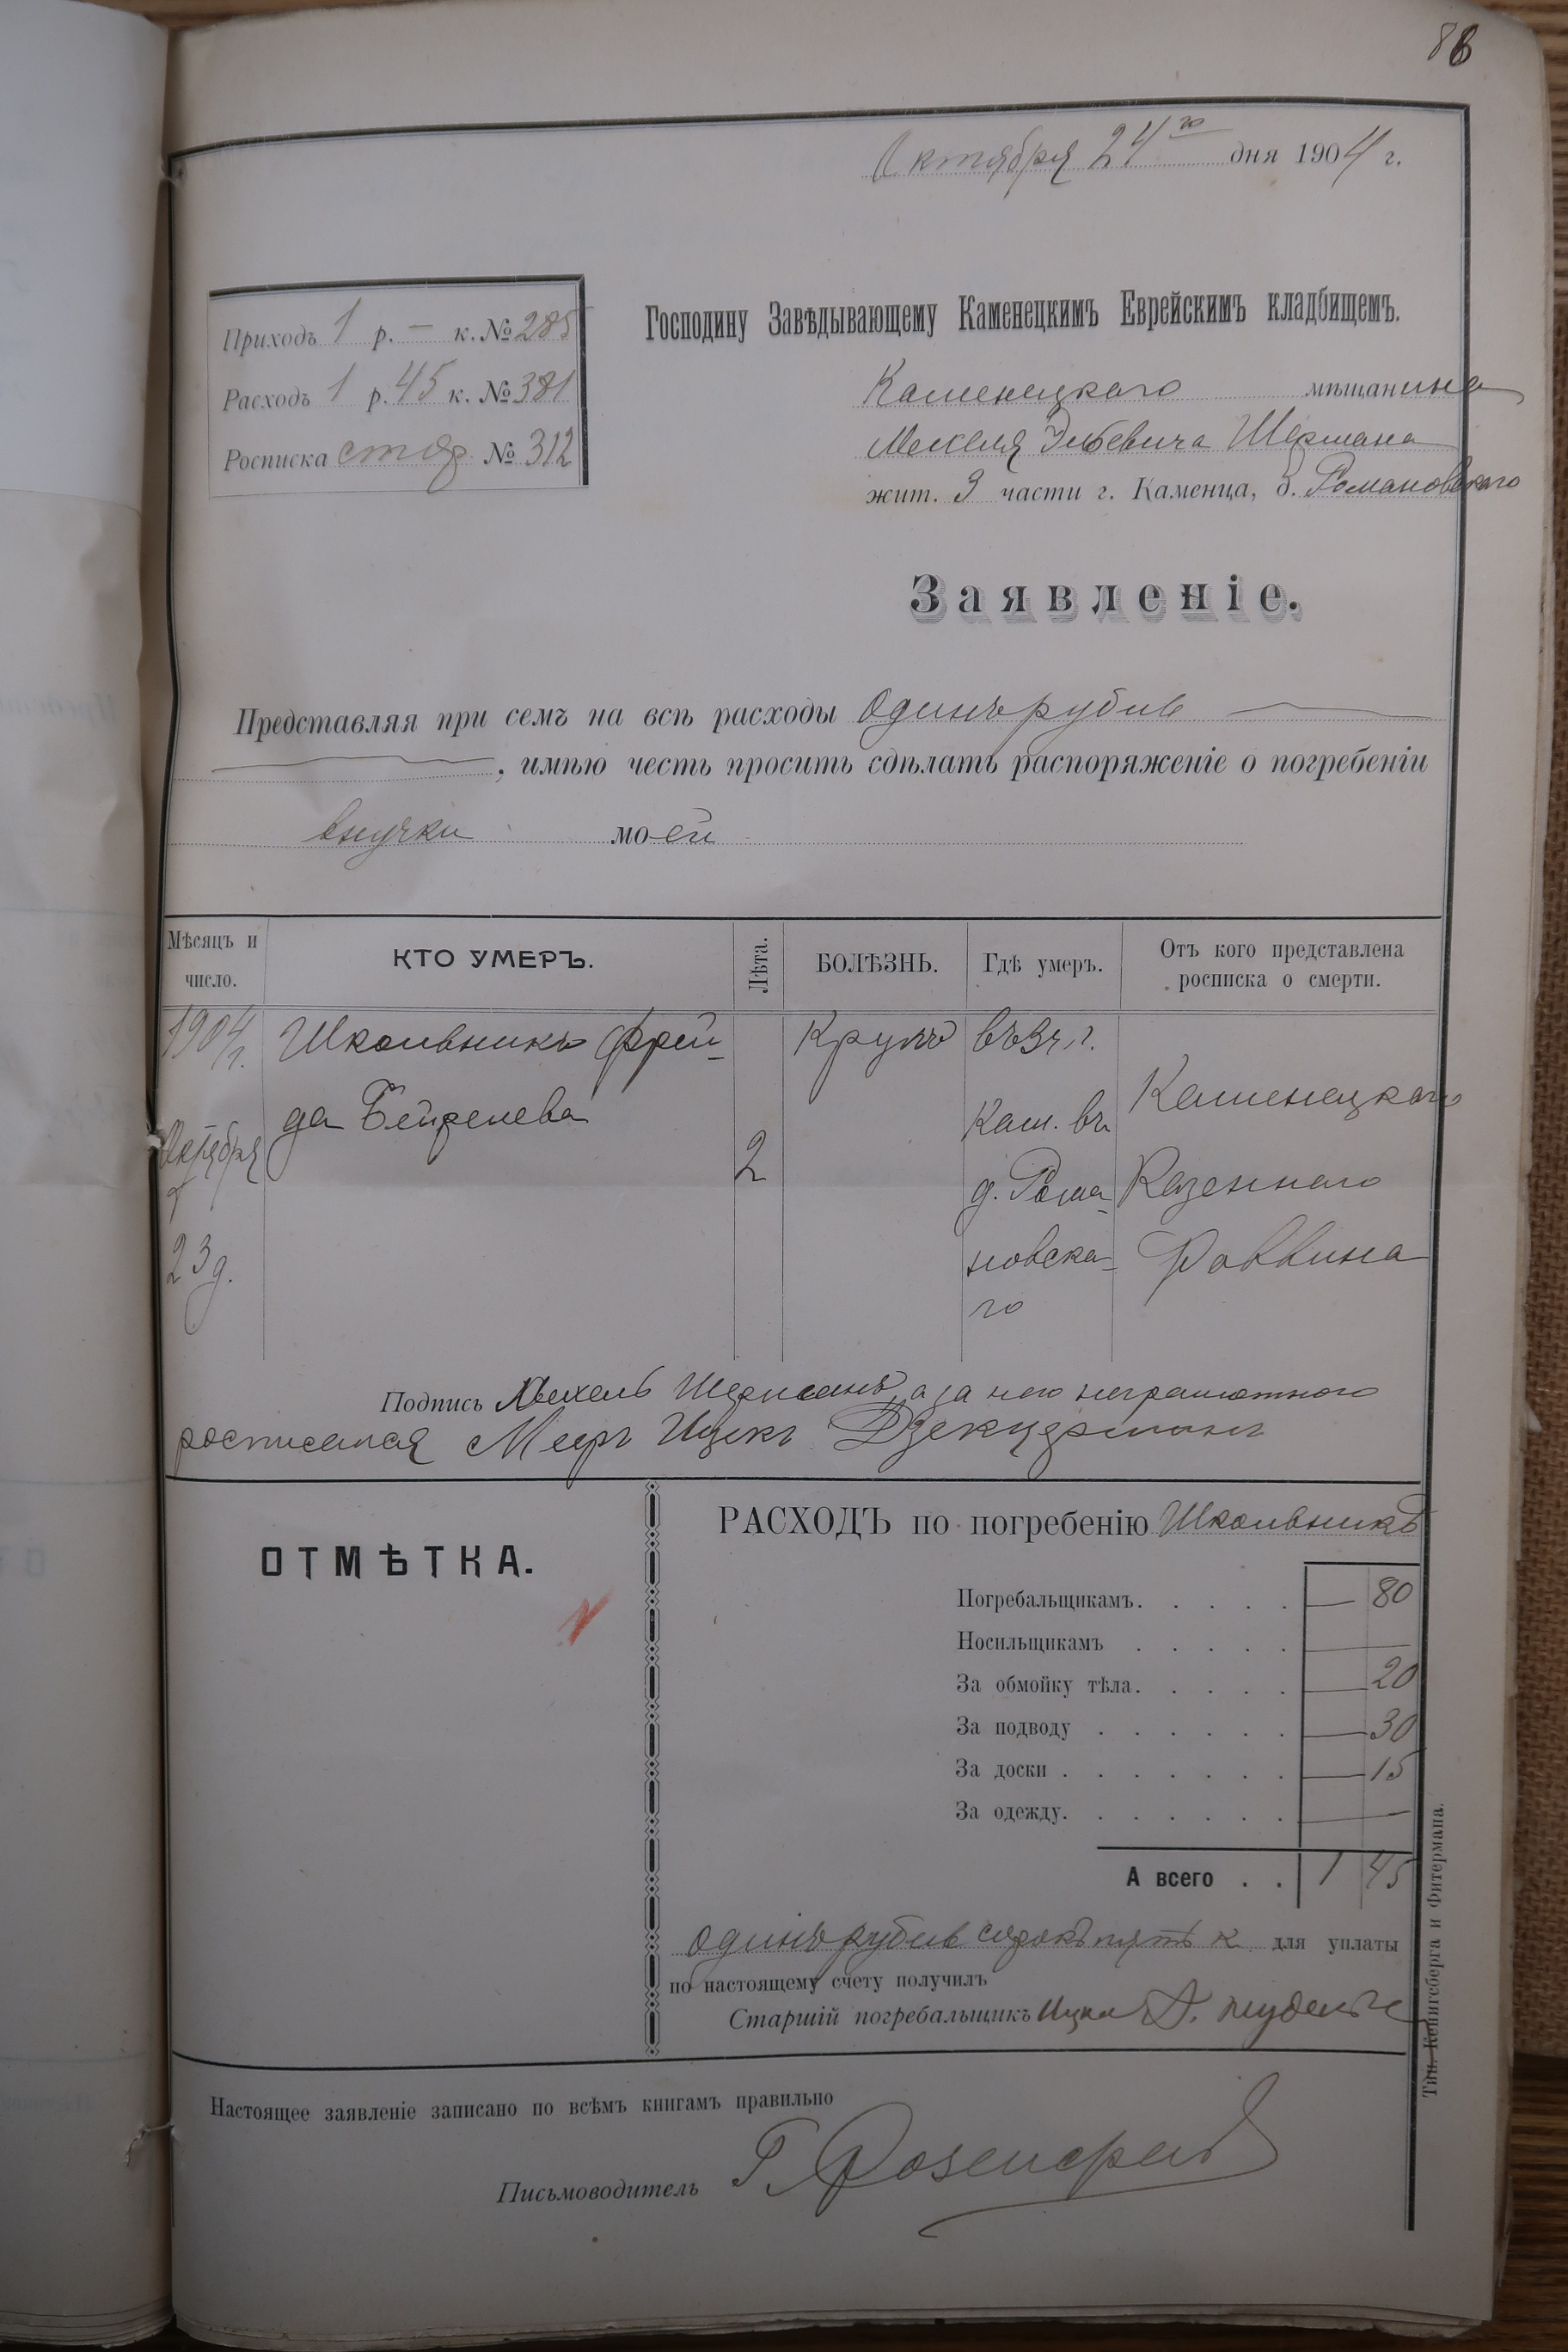 88
Октября 24го дня 1904 г.
Приходъ 1 р. — к. № 285
Расходъ 1 р. 45 к. № 381
Росписка № 312
Господину Завѣдывающему Каменецкимъ Еврейскимъ кладбищемъ.
Каменецкаго мѣщанина
Шермана
жит. 3 части г. Каменца, д. Романовскаго
Заявленіе.
Представляя при семъ на всѣ расходы одинъ рубль —
—, имѣю честь просить сдѣлать распоряженіе о погребеніи
внучки моей
Мѣсяцъ и число.
КТО УМЕРЪ.
Лѣта.
БОЛѢЗНЬ.
Гдѣ умеръ.
Отъ кого представлена росписка о смерти.
1904 г.
Октября
23 д.
Школьникъ Фрей-
да
2
Крупъ
въ 3 ч. г.
Кам. въ
д. Рома-
новска-
го
Каменецкаго
Казеннаго
Раввина
Подпись Мехель Шерманъ, а за него неграмотнаго
росписался Меер Ицик Дзекцерман
ОТМѢТКА.
РАСХОДЪ по погребенію Школьникъ
Погребальщикамъ. . . . . — 80
Носильщикамъ . . . . . —
За обмойку тѣла. . . . . — 20
За подводу . . . . . . — 30
За доски . . . . . . . — 15
За одежду. . . . . . . —
А всего . . 1 45
одинъ рубль сорокъ пять к для уплаты
по настоящему счету получилъ
Старшій погребальщикъ Ицка
Тип. Кенигсберга и Фитермана.
Настоящее заявленіе записано по всѣмъ книгамъ правильно
Письмоводитель Г.